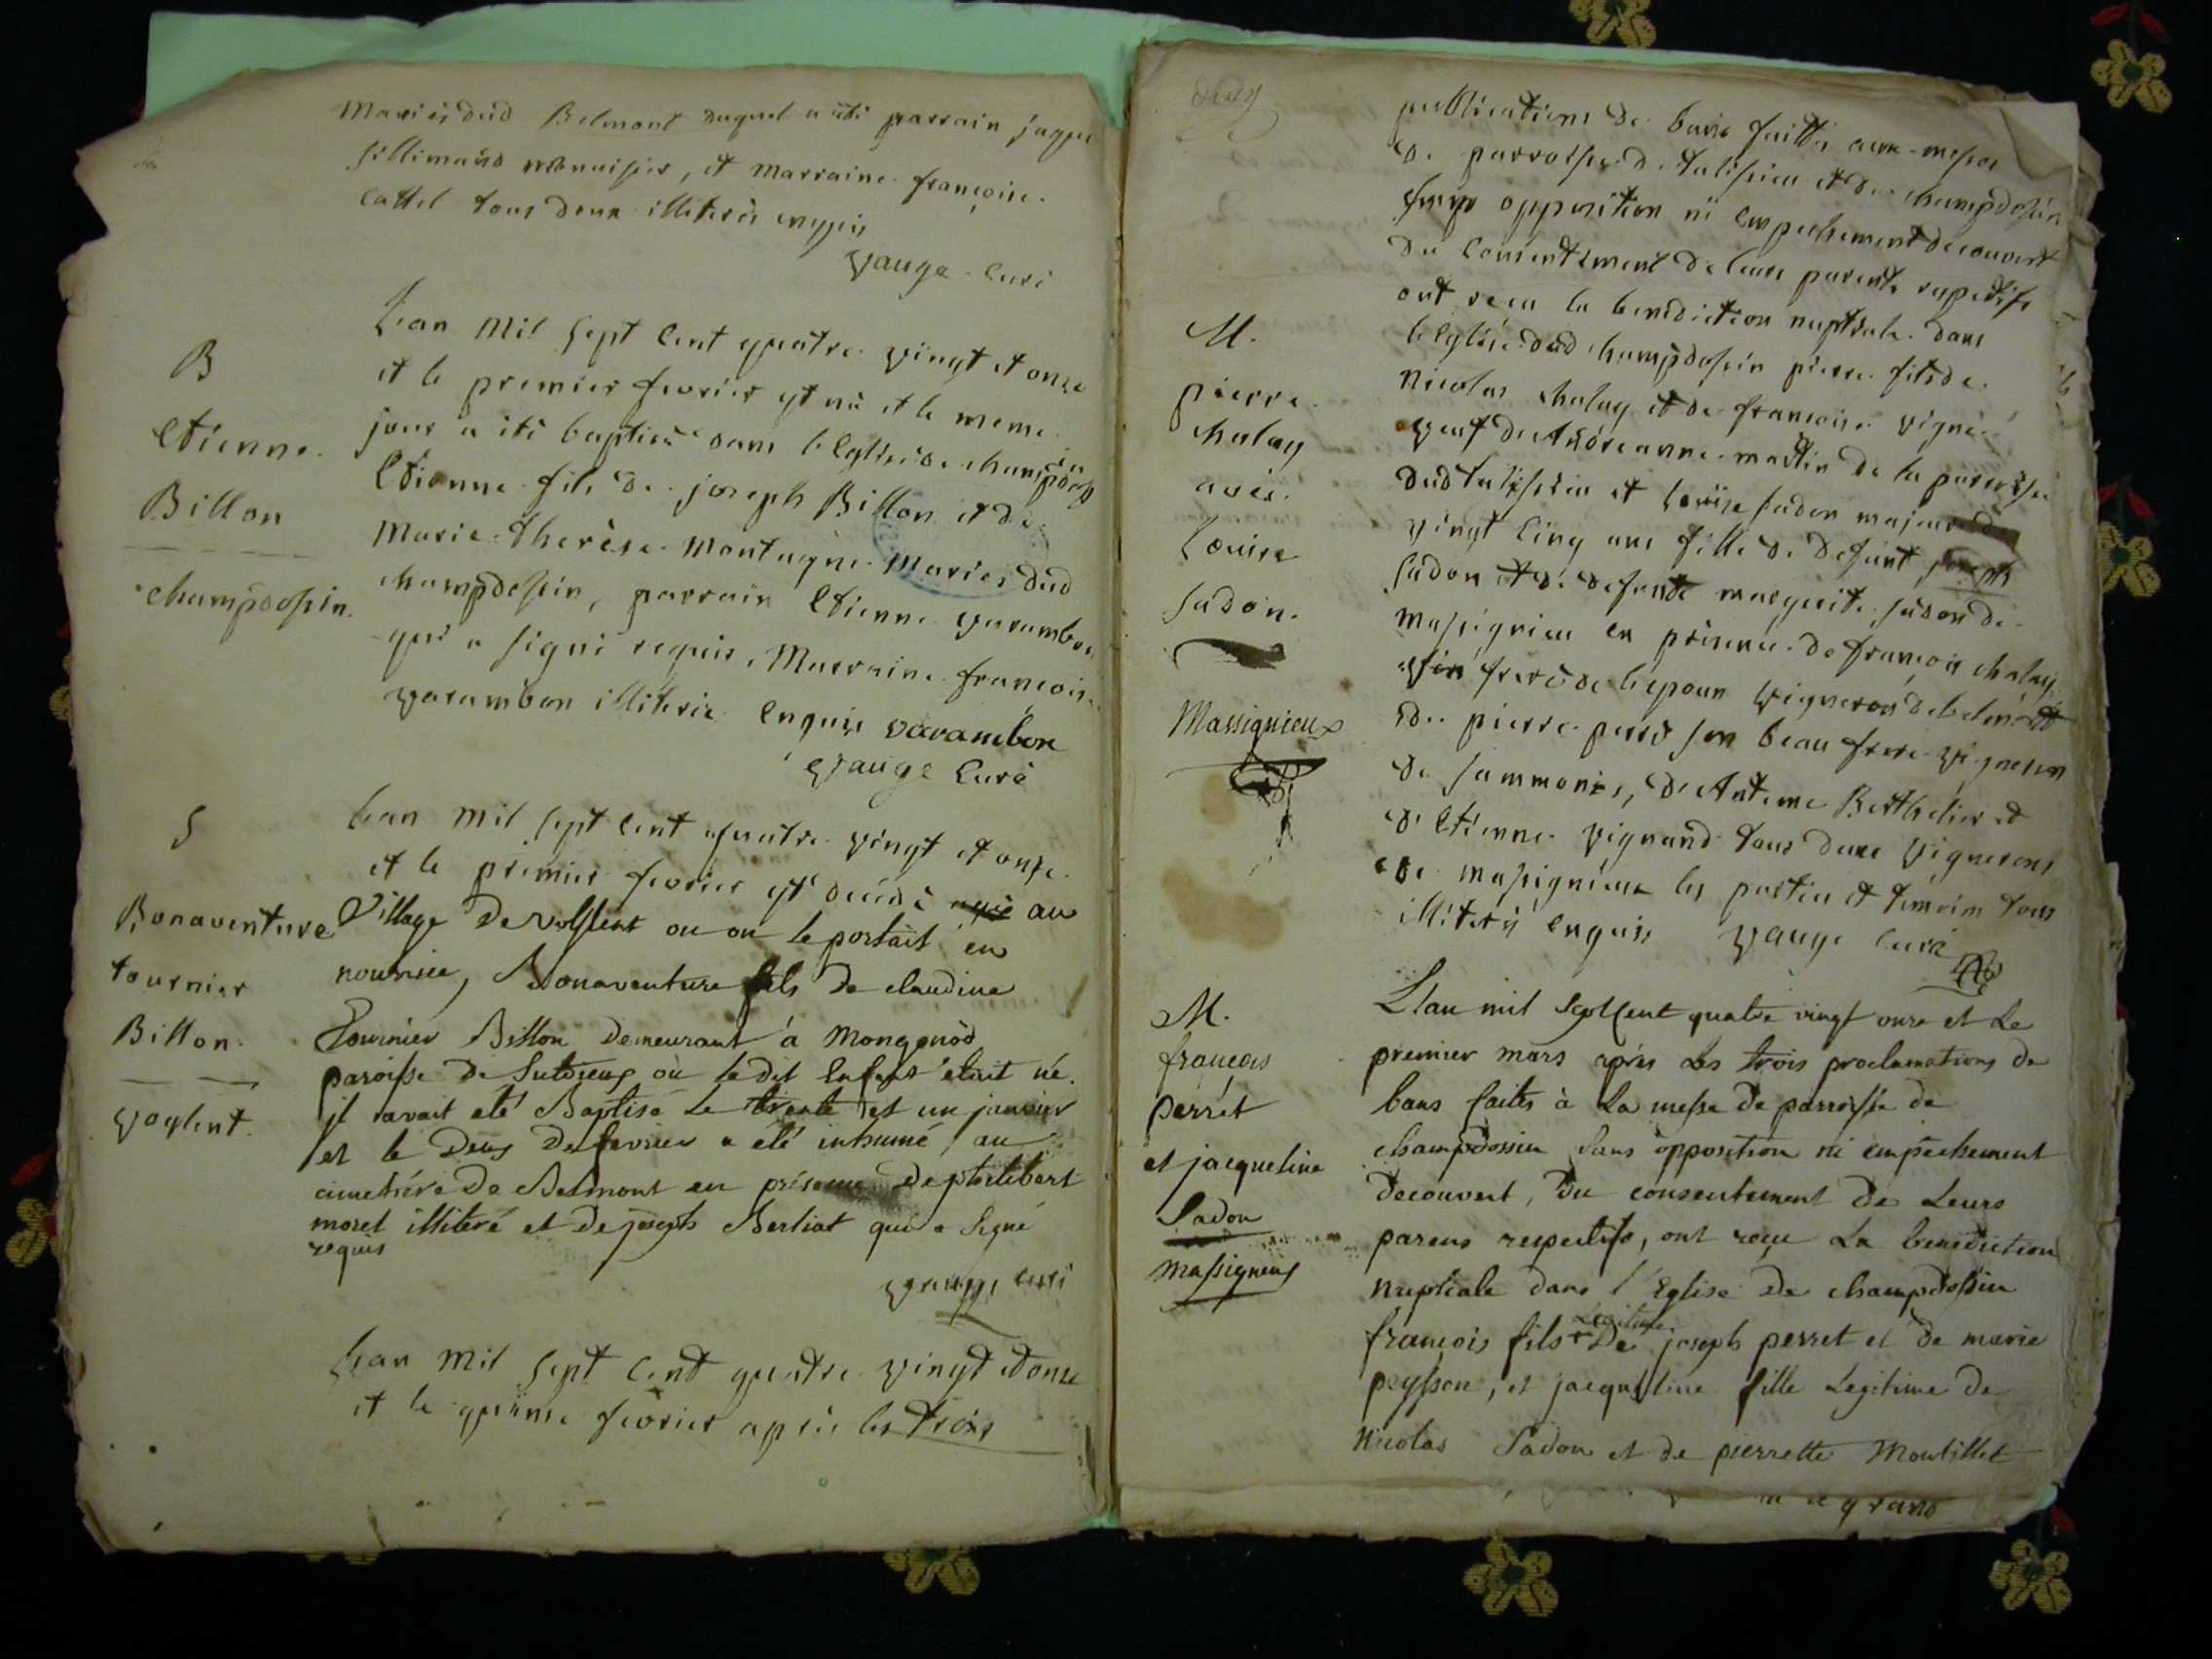 Mariés dud Belmont duquel a été parrain jaque
sillimand menuisier, et marraine françoise
cattel tous deux illiterés enquis
Vauge Curé
B
Etienne
Billon
champdosin
Lan mil sept cent quatre vingt et onze
et le premier fevrier est né et le meme
jour a été baptisé dans leglise de champdosin
Etienne fils de joseph Billon et de
Marie Therèse Montagne mariés dud
champdosin, parrain Etienne varambon
qui a signé requis, Marraine françoise
varambon illiterée enquise varambon
Vauge Curé
S
Bonaventure
tournier
Billon
voglent
Lan mil sept cent quatre vingt et onze
et le premier fevrier est décédé au
Village de ou on le portait en
nourrice, Bonaventure fils de claudine
Tournier Billon demeurant à Mongonod
paroisse de Sutrieux où le dit Enfant était né.
jl avait eté Baptisé le trente et un janvier
et le deux de fevrier a été inhumé au
cimetiére de Belmont en présence de philibert
morel illiteré et de joseph Berliat qui a signé
requis
Vauge curé
Lan mil sept cent quatre vingt et onze
et le quinze fevrier après les trois
publications de bans faittes aux messes
de parroisse de talissieu et de champdosin
sans opposition ni empechement decouvert
du consentement de leurs parents respectifs
ont reçu la benediction nuptiale dans
leglise dud champdosin pierre fils de
Nicolas chalay et de françoise vigne
veuf de Andréanne martin de la paroisse
dud talissieu et Louise sadon majeure de
vingt cinq ans fille de defunt joseph
sadon et de defunte margerite sadon de
massignieu en présence de françois chalay
frere de lepoux vigneron de belmont
de pierre perret son beau frere vigneron
de sammonés, de Anteme Berthelier et
de Etienne vignand tous deux vignerons
de massignieux les parties et témoins tous
illiterés enquis Vauge curé
M.
pierre
chalay
avec
Louise
sadon.
Massignieux
M.
françois
perret
et jacqueline
Sadon
massigneux
L'an mil Sept Cent quatre vingt onze et Le
premier mars aprés Les trois proclamations de
bans faites à La messe de parroisse de
champdossin Sans opposition ni empéchement
decouvert, du consentement de Leurs
parens respectifs, ont reçu La benediction
nuptiale dans l'Eglise de champdossin
françois fils Legitime de joseph perret et de marie
peysson, et jacqueline fille Legitime de
Nicolas Sadon et de pierrette Montillet